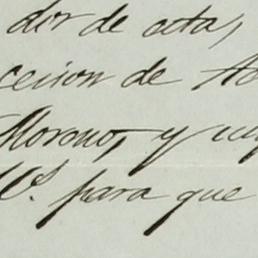 dor de esta,
ccion de
Moreno, y
M.s para que